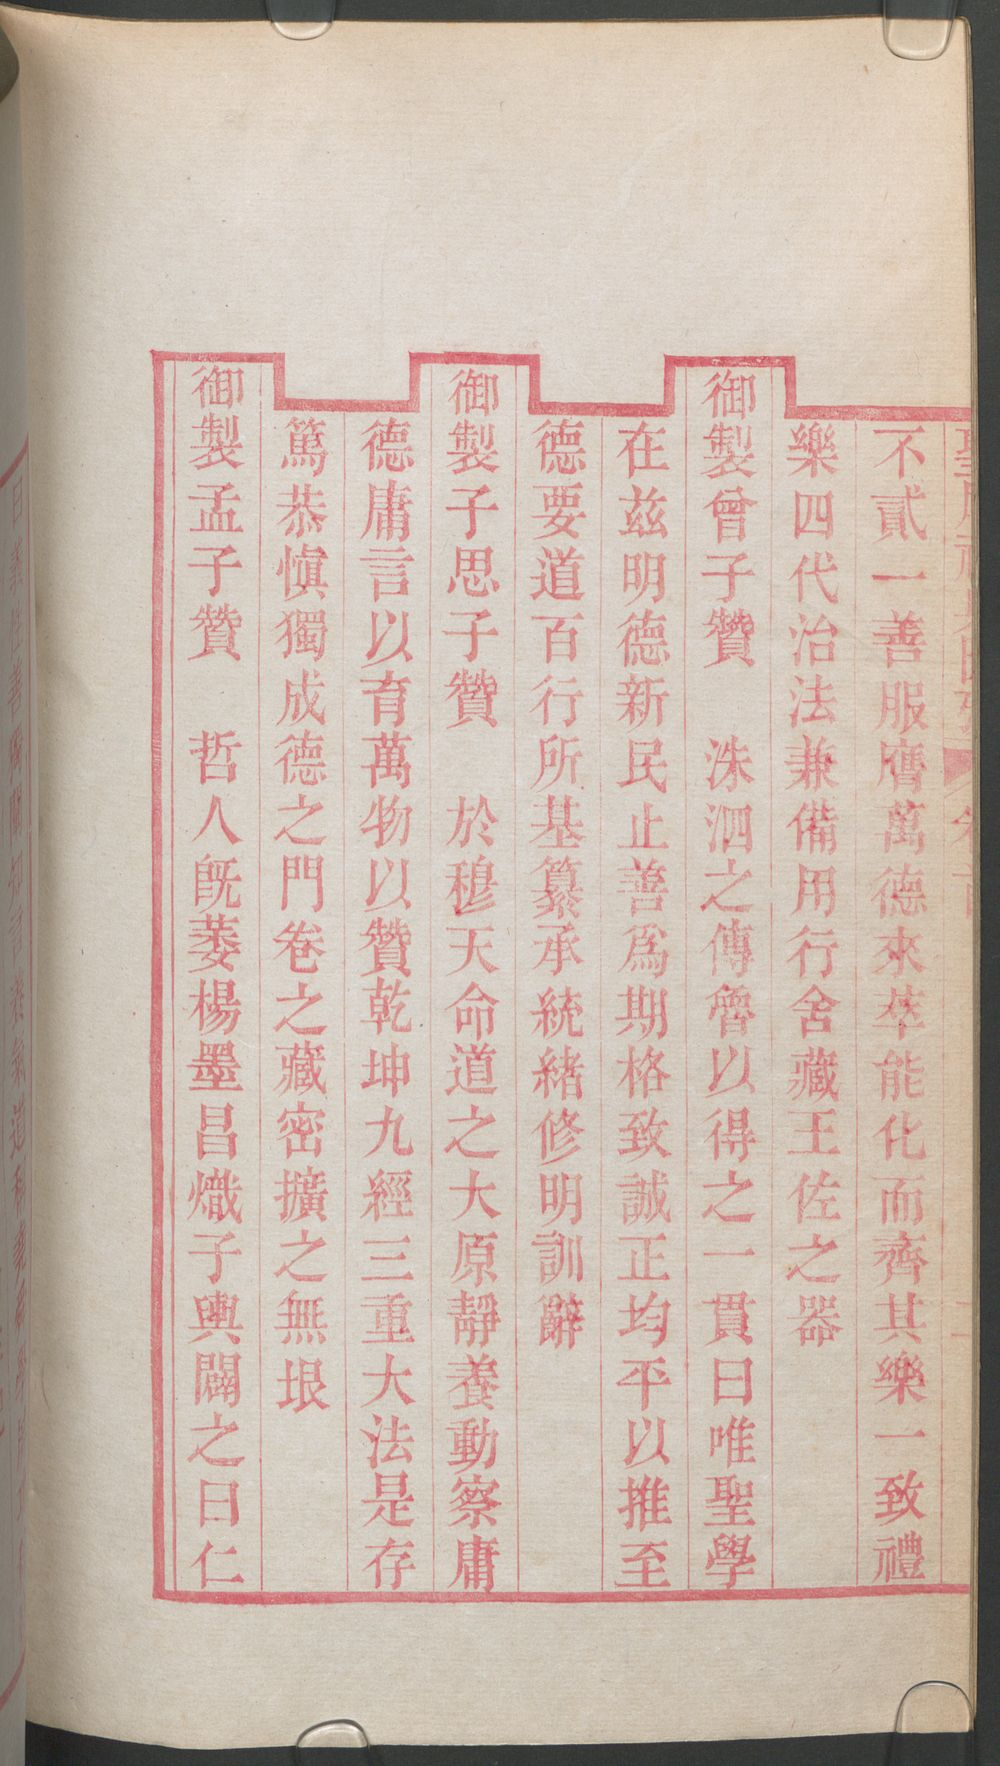 不貳一善服膺萬德來萃能化而齊其樂一致禮
樂四代治法兼備用行舍藏王佐之器
御製曾子贊　洙泗之傳魯以得之一貫曰唯聖學
在茲明德新民止善爲期格致誠正均平以推至
德要道百行所基纂承統緒修明訓辭
御製子思子贊　於穆天命道之大原靜養動察庸
德庸言以育萬物以贊乾坤九經三重大法是存
篤恭愼獨成德之門卷之藏密擴之無垠
御製孟子贊　哲人旣萎楊墨昌熾子輿闢之曰仁